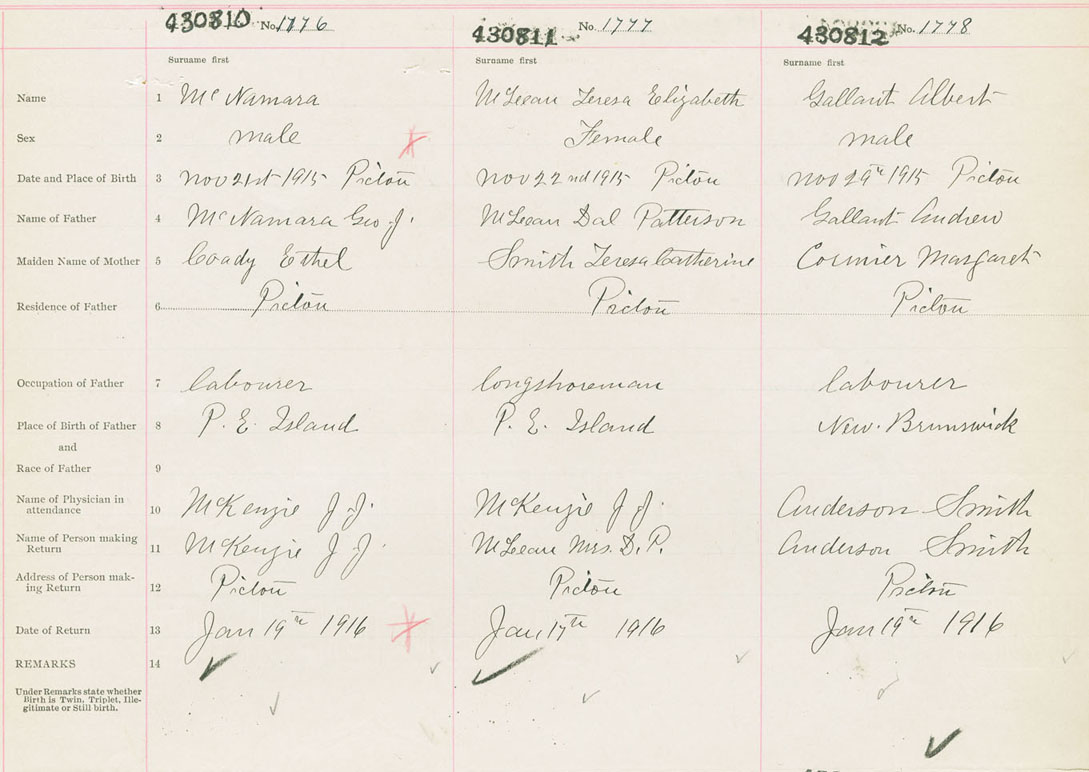 430810 No. 1776 430811 No. 1777 430812 No. 1778
Surname first Surname first Surname first
Name 1 McNamara McLean Teresa Elizabeth Gallant Albert
Sex 2 male Female male
Date and Place of Birth 3 Nov 21st 1915 Pictou Nov 22nd 1915 Pictou Nov 29th 1915 Pictou
Name of Father 4 McNamara Geo J. McLean Dal Patterson Gallant Andrew
Maiden Name of Mother 5 Coady Ethel Smith Teresa Catherine Cormier Margaret
Residence of Father 6 Pictou Pictou Pictou
Occupation of Father 7 labourer longshoreman labourer
Place of Birth of Father 8 P. E. Island P. E. Island New. Brunswick
and
Race of Father 9
Name of Physician in
attendance 10 McKenzie J. J. McKenzie J J. Anderson Smith
Name of Person making
Return 11 McKenzie J. J. McLean Mrs. D. P. Anderson Smith
Address of Person mak-
ing Return 12 Pictou Pictou Pictou
Date of Return 13 Jan 19th 1916 Jan 17th 1916 Jan 19th 1916
REMARKS 14
Under Remarks state whether
Birth is Twin, Triplet, Ille-
gitimate or Still birth.